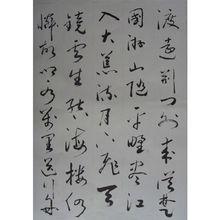 渡遠荆门外来從楚
國游山随平野盡江
入大荒流月下飛天
鏡雲生結海樓仍
憐故鄉水萬里送行舟